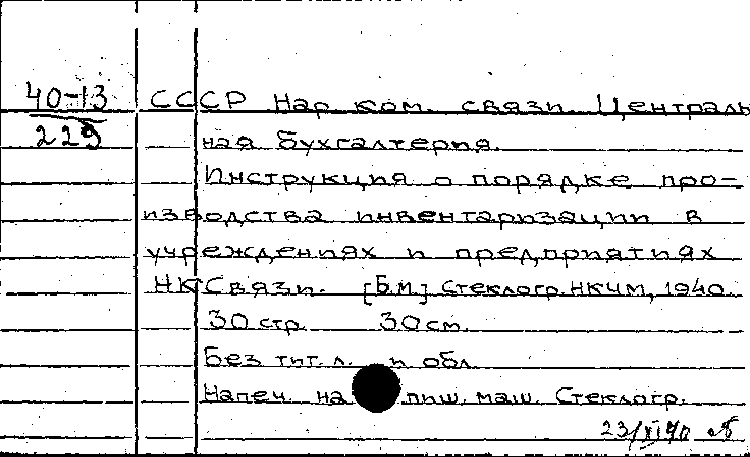 40-13 СССР Нар. ком. связи. Централь
229 ная Бухгалтерия.
Инструкция о порядке про-
изводства инвентаризации в
учреждениях и предприятиях
НКСвязи. [Б.м.] Стеклогр. НКЧМ, 1940.
30 стр. 30 см.
Без тит. л. и обл.
Напеч. на пиш. маш. Стеклогр.
23/XI 40